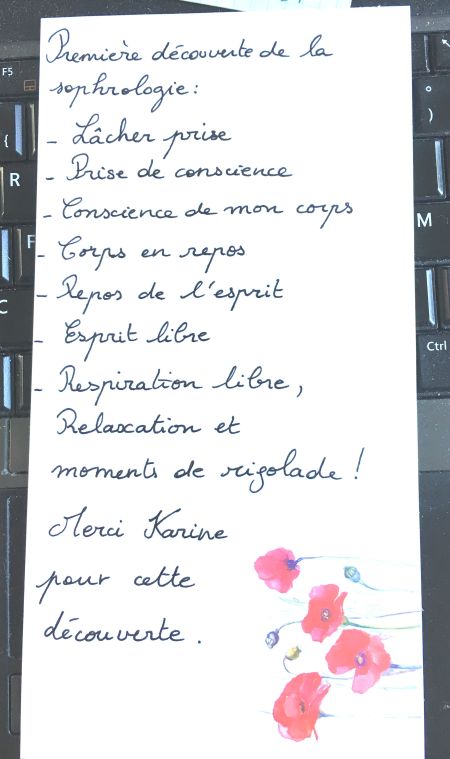 Première découverte de la
sophrologie :
- Lâcher prise
- Prise de conscience
- Conscience de mon corps
- Corps en repos
- Repos de l'esprit
- Esprit libre
- Respiration libre,
Relaxation et
moments de rigolade !
Merci Karine
pour cette
découverte .
F5
{
R
F
C
°
)
M
Ctrl